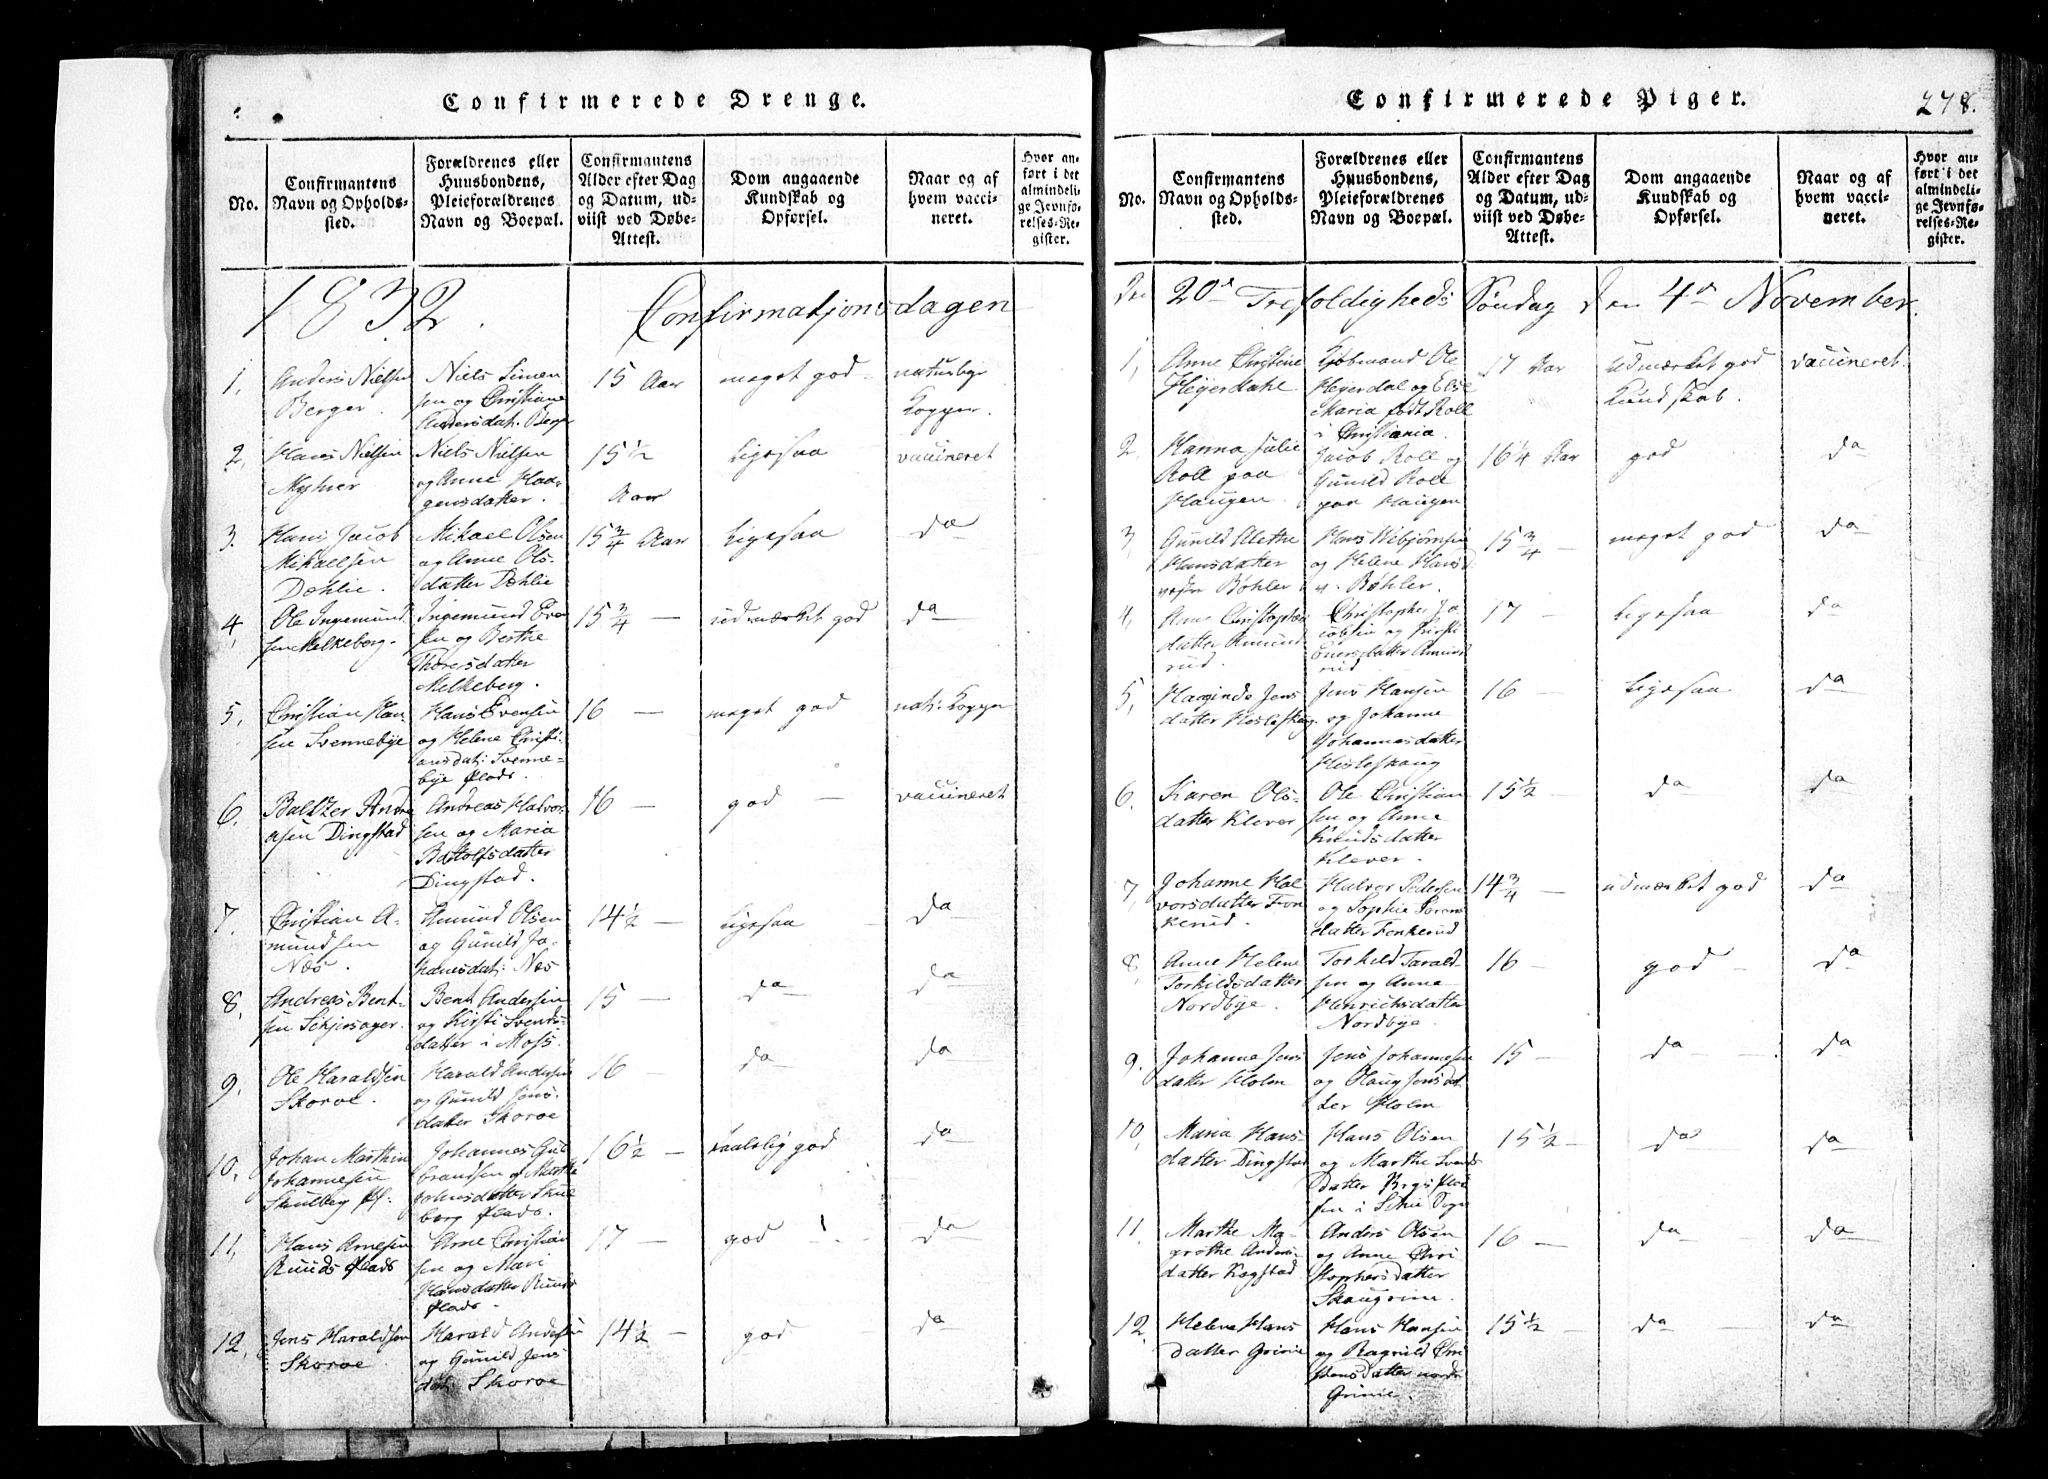 Confirmerede Drenge.
No.
Confirmantens
Navn og Opholds-
sted.
Forældrenes eller
Huusbondens,
Pleieforældrenes
Navn og Boepæl.
Confirmantens
Alder efter Dag
og Datum, ud-
viist ved Døbe-
Attest.
Dom angaaende
Kundskab og
Opførsel.
Naar og af
hvem vacci-
neret.
Hvor an-
ført i det
almindeli-
ge Jevnfø-
relses-Re-
gister.
1832. Confirmatjonsdagen
1,
Anders Nielsen
Berger.
Niels Simen
sen og Christiane
Andersdat. Berger
15 Aar
meget god
naturlige
Kopper.
2,
Hans Nielsen
Myhrer
Niels Nielsen
og Anne Haa-
gensdatter.
15 1/2
Aar
ligesaa
vaccineret
3.
Hans Jacob
Mikaelsen
Dæhlie.
Mikael Olsen
og Anne Ols-
datter Dæhlie
15 3/4 Aar
ligesaa
da
4,
Ole Ingemund
sen Melkeberg.
Ingemund Even
sen og Berthe
Thoresdatter
Melkeberg.
15 3/4 —
udmærket god
da
5,
Christian Han
sen Svennebye
Hans Evensen
og Helene Christi-
ansdat: Svenne-
bye Plads.
16 —
meget god
nat: Kopper
6.
Baltzer Andre
asen Dingstad
Andreas Halvor
sen og Maria
Battolfsdatter
Dingstad.
16 —
god —
vaccineret
7.
Christian A-
mundsen
Næs.
Amund Olsen
og Gunild Jo-
hansdat: Næs
14 1/2 —
ligesaa
da
8,
Andreas Bent-
sen Schjersager.
Bent Andersen
og Kirsti Svends-
datter i Moss.
15 —
da
da
9,
Ole Haraldsen
Skoroe.
Harald Andersen
og Gunild Jens-
datter Skoroe
16 —
da
da
10,
Johan Marthin
Johannesen
Skulberg Pl:
Johannes Gul
brandsen og Marthe
Johnsdatter Skul
berg Plads.
16 1/2 —
taalelig god
da
11,
Hans Arnesen
Ruuds Plads
Arne Christian
sen og Mari
Hansdatter Ruuds
Plads.
17 —
god
da
12,
Jens Haraldsen
Skoroe
Harald Andersen
og Gunild Jens
dat: Skoroe
14 1/2 —
god
da
Confirmerede Piger.
278.
No.
Confirmantens
Navn og Opholds-
sted.
Forældrenes eller
Huusbondens,
Pleieforældrenes
Navn og Boepæl.
Confirmantens
Alder efter Dag
og Datum, ud-
viist ved Døbe-
Attest.
Dom angaaende
Kundskab og
Opførsel.
Naar og af
hvem vacci-
neret.
Hvor an-
ført i det
almindeli-
ge Jevnfø-
relses-Re-
gister.
20de Trefoldigheds Søndag den 4de November.
1,
Anne Christine
Heyerdahl
Kjøbmand Ole
Heyerdal og Else
Maria født Roll
i Christiania.
17 Aar
udmærket god
Kundskab.
vaccineret
2,
Hanna Julie
Roll paa
Haugen.
Jacob Roll og
Gunild Roll
paa Haugen
16 1/4 Aar
god
da
3,
Gunild Alethe
Hansdatter
vestre Bøhler
Hans Wibjørnsen
og Helene Hansd
v. Bøhler.
15 3/4 —
meget god
da
4,
Anne Christophers
datter Amund
rud.
Christopher Ja
cobsen og Kirsti
Enersdatter Amund
rud
17 —
ligesaa
da
5,
Jens
datter
Jens Hansen
og Johanne
Johannesdatter
16 —
ligesaa
da
6.
Karen Ols-
datter Klever
Ole Christian
sen og Anne
Knudsdatter
Klever.
15 1/2 —
da
da
7,
Johanne Hal
vorsdatter Fon
kerud.
Halvor Pedersen
og Sophie Sørens
datter Fonkerud
14 3/4 —
udmærket god
da
8,
Anne Helene
Torkildsdatter
Nordbye.
Torkild Tarald-
sen og Anna
Henrichsdatter
Nordbye.
16 —
god —
da
9.
Johanna Jens
datter Holm
Jens Johannesen
og Olaug Jensdat
ter Holm
15 —
da
da
10,
Maria Hans-
datter Dingstad
Hans Olsen
og Marthe Svends
datter
sen i Schie
15 1/2 —
da
da
11,
Marthe Ma-
grethe Anders-
datter Kogstad
Anders Olsen
og Anne Chri
stophersdatter
Skaugrim.
16 —
da
da
12,
Helene Hans
datter Grinie
Hans Hansen
og Ragnild Chri
stensdatter nordr
Grinie.
15 1/2 —
da
da